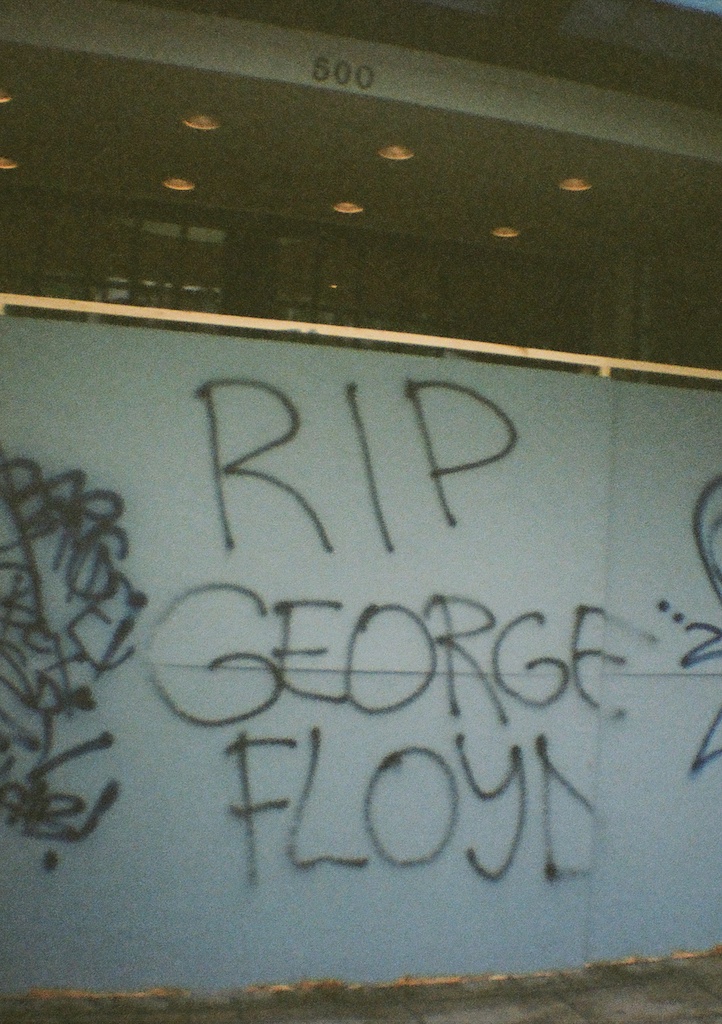 500
RIP
GEORGE
FLOYD